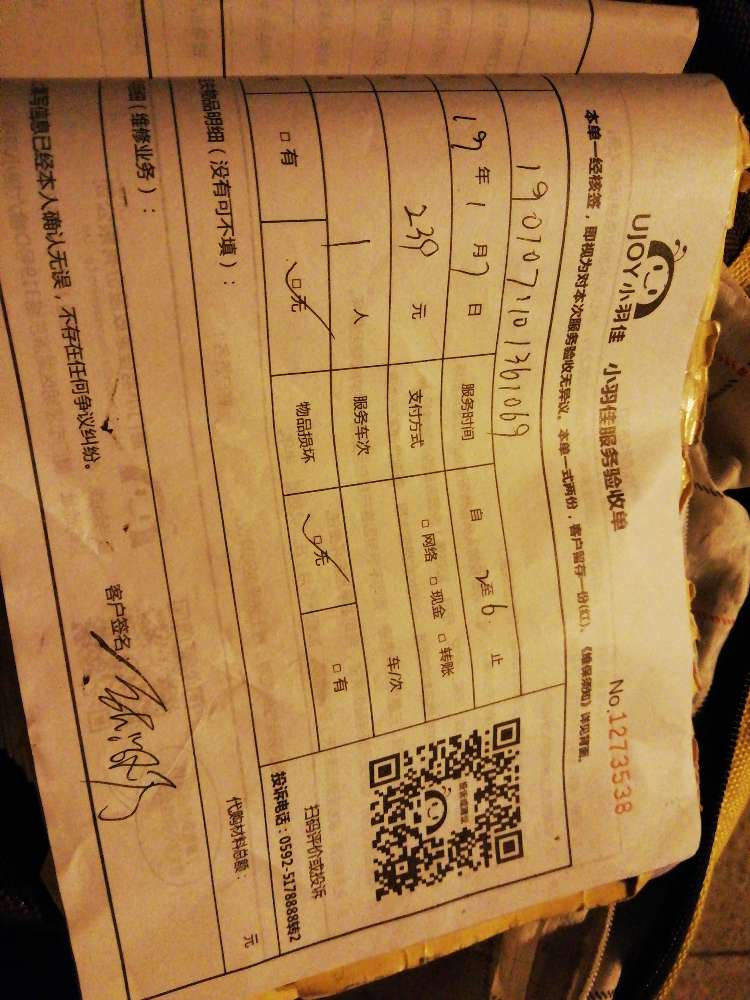 UJOY小羽佳 小羽佳服务验收单 No.1273538
本单一经核签，即视为对本次服务验收无异议。本单一式两份，客户留存一份(红)。《维保须知》详见背面。
190107101361069
19年1月7日 服务时间 自2至6止
239元 支付方式 □网络 □现金 □转账
1人 服务车次 车/次
□有 □无 物品损坏 □无 □有
扫码评价或投诉
投诉电话：0592-5178888转2
物品明细（没有可不填）：
代购材料总额： 元
（维修业务）：
信息已经本人确认无误，不存在任何争议纠纷。
客户签名